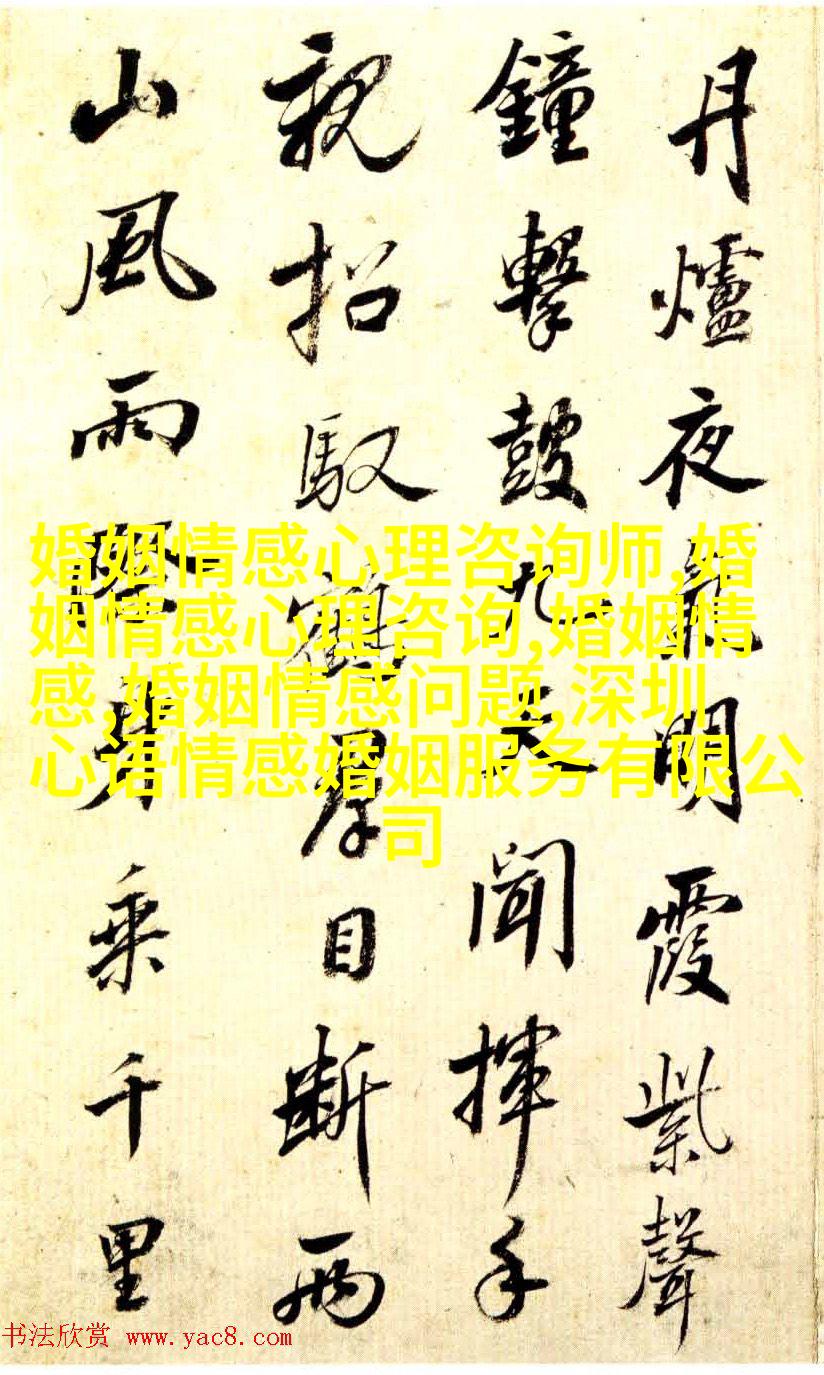 丹爐夜氣明霞紫聲
鐘擊鼓九天聞揮手
親招馭鶴羣目斷兩
山風雨乘千里
婚姻情感心理咨询师,婚
姻情感心理咨询,婚姻情
感,婚姻情感问题,深圳
心语情感婚姻服务有限公
司
书法欣赏 www.yac8.com